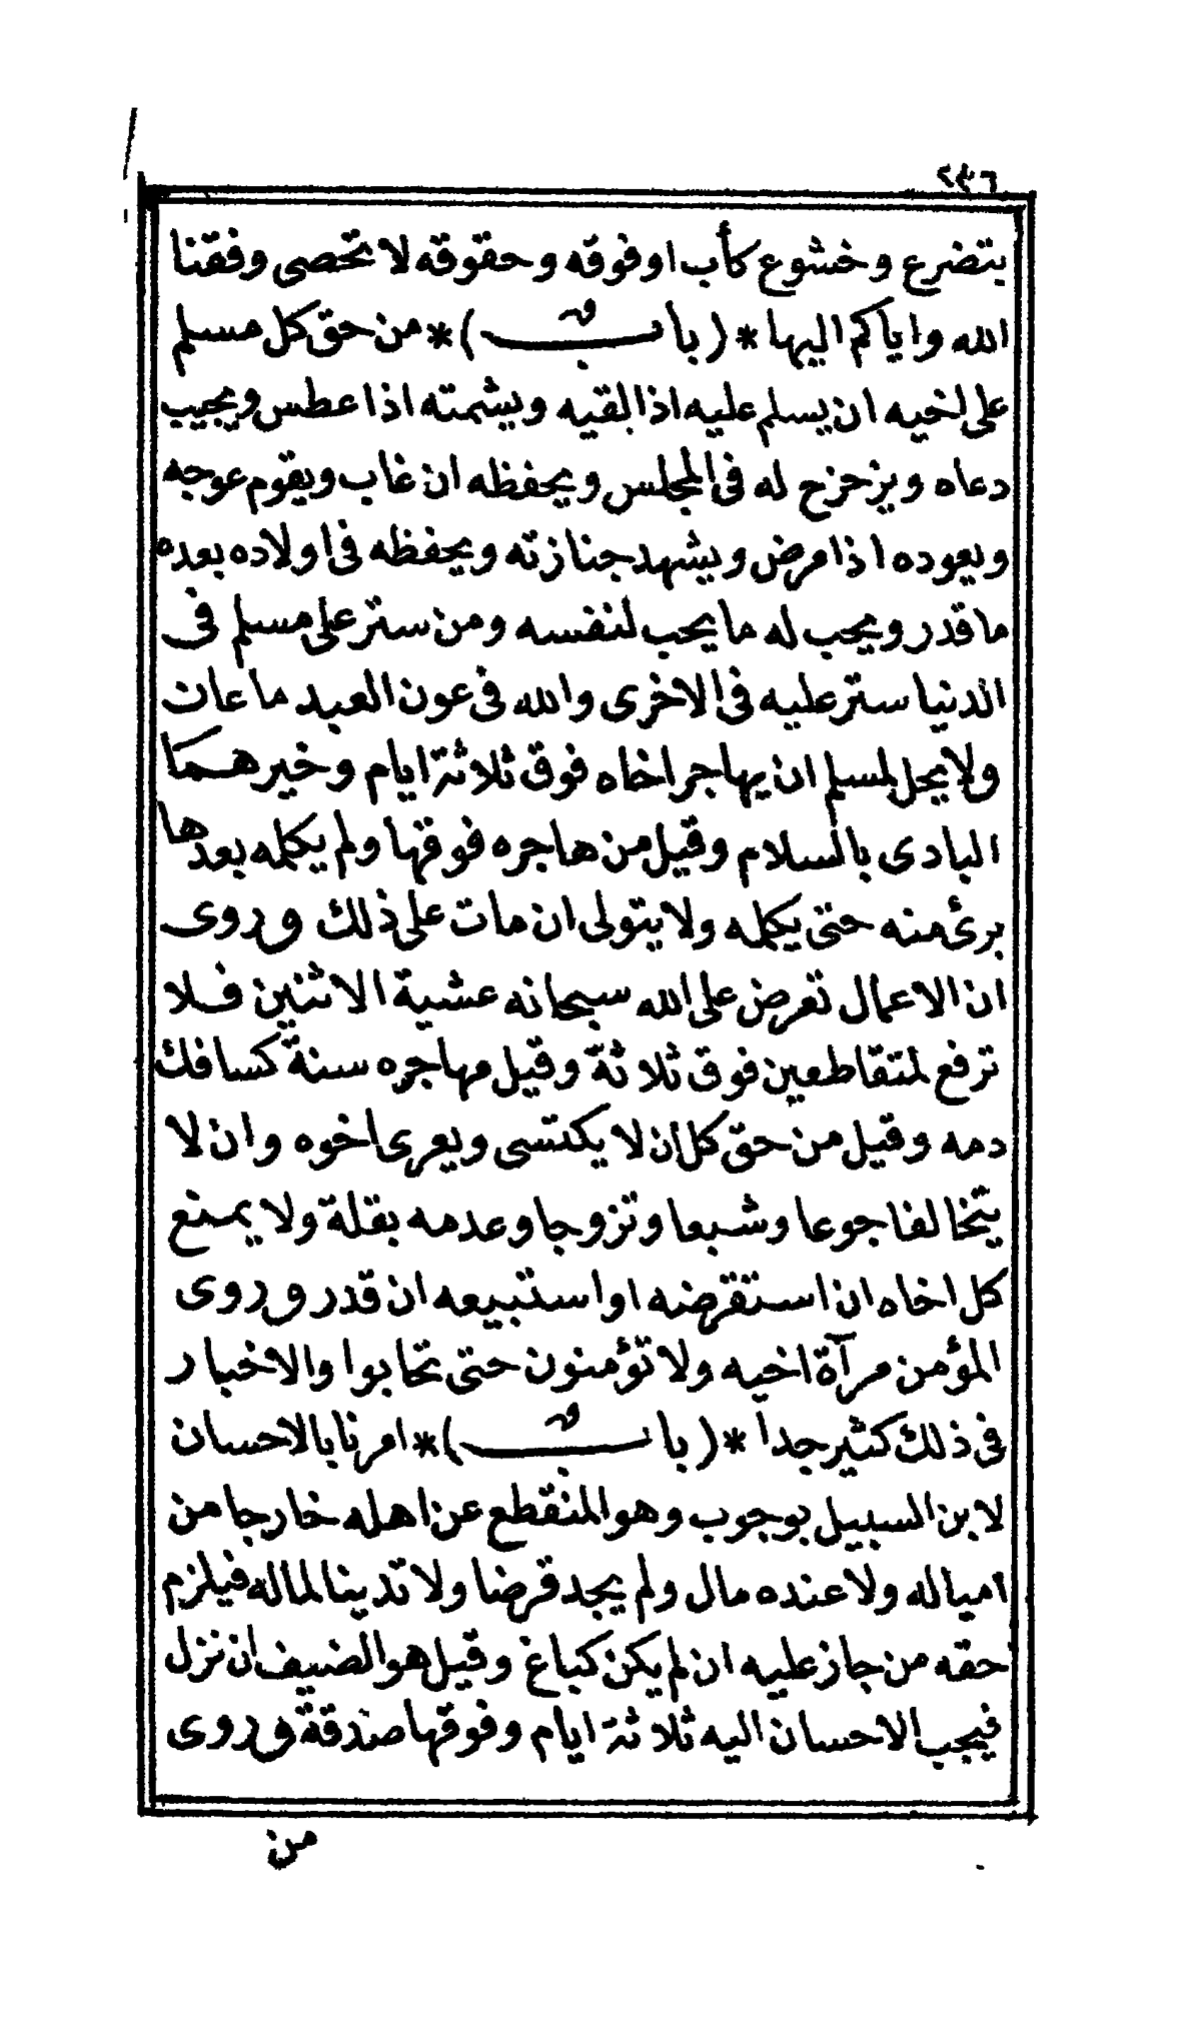 ٢٣٦
بتضرع وخشوع كأب او فوقه وحقوقه لا تحصى وفقنا
الله واياكم اليها *( باب )* من حق كل مسلم
على اخيه ان يسلم عليه اذا لقيه ويشمته اذا عطس ويجيب
دعاه ويزحزح له فى المجلس ويحفظه ان غاب ويقوم عوجه
ويعوده اذا مرض ويشهد جنازته ويحفظه فى اولاده بعده
ما قدر ويحب له ما يحب لنفسه ومن ستر على مسلم فى
الدنيا ستر عليه فى الاخرى والله فى عون العبد ما عان
ولا يحل لمسلم ان يهاجر اخاه فوق ثلاثة ايام وخيرهما
البادى بالسلام وقيل من هاجره فوقها ولم يكلمه بعدها
برئ منه حتى يكلمه ولا يتولى ان مات على ذلك وروى
ان الاعمال تعرض على الله سبحانه عشية الاثنين فلا
ترفع لمتقاطعين فوق ثلاثة وقيل مهاجره سنة كسافك
دمه وقيل من حق كل ان لا يكتسى ويعرى اخوه وان لا
يتخالفا جوعا وشبعا وتزوجا وعدمه بقلة ولا يمنع
كل اخاه ان استقرضه او استبيعه ان قدر وروى
المؤمن مرآة اخيه ولا تؤمنون حتى تحابوا والاخبار
فى ذلك كثير جدا *( باب )* امرنا بالاحسان
لابن السبيل بوجوب وهو المنقطع عن اهله خارجا من
امياله ولا عنده مال ولم يجد قرضا ولا تدينا لماله فيلزم
حقه من جاز عليه ان لم يكن كباغ وقيل هو الضيف ان نزل
فيجب الاحسان اليه ثلاثة ايام وفوقها صدقة وروى
من